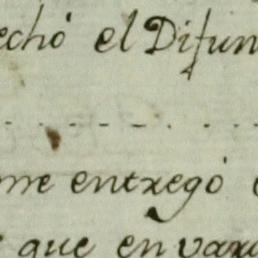 echó el Difun
me entregó
que en vax